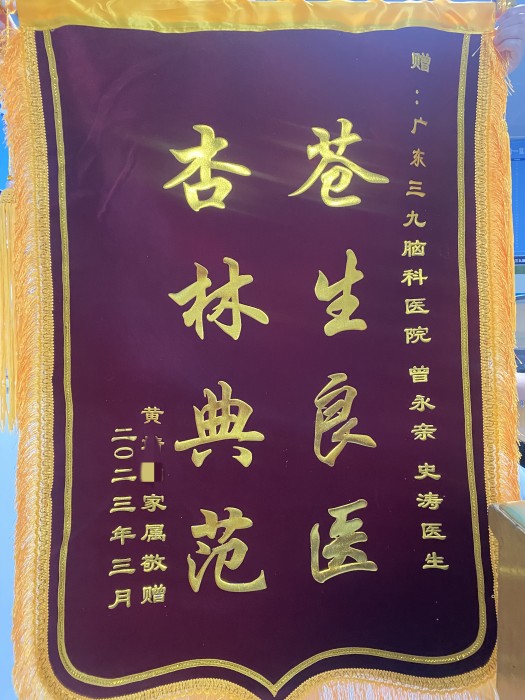 赠：广东三九脑科医院 曾永亲 史涛医生
苍生良医
杏林典范
黄 家属敬赠
二〇二三年三月